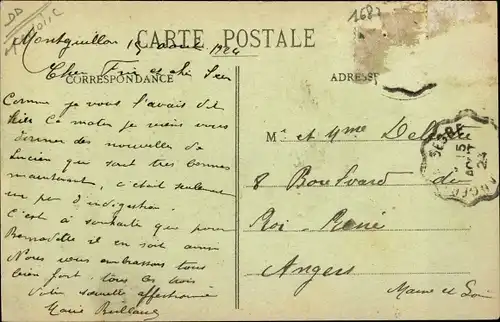 1687
CARTE POSTALE
Montguillon 15 avril 1924
Cher Frère et chère Sœur
CORRESPONDANCE
ADRESSE
Comme je vous l'avais dit
ce matin je viens vous
donner des nouvelles de
Lucien qui sont très bonnes
maintenant, c'était seulement
un peu d'indigestion
C'est à souhaiter que pour
Bernadette il en soit ainsi
Nous vous embrassons tous
bien fort. tous les trois
Votre sœurette affectionnée
Marie
Mr et Mme
8 Boulevard du
Roi-René
Angers
Maine et Loire
SEGRE
15
24
ANGERS